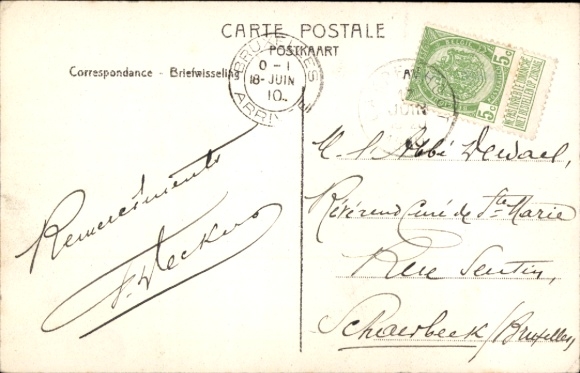 CARTE POSTALE
POSTKAART
Correspondance - Briefwisseling
BRUXELLES
0-1
18-JUIN
10
ARRIV
JUIN
BELGIE
5c 5c
NE PAS LIVRER LE DIMANCHE
NIET BESTELLEN OP ZONDAG
M. l'Abbé Dewael,
Révérend Curé de Ste Marie
Rue
Schaerbeek (Bruxelles)
Remerciments
F. Deckers